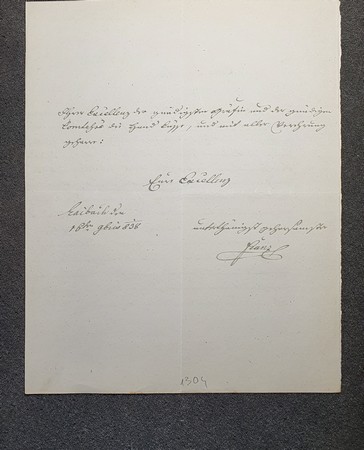 Ihrer Excellenz der gnädigsten Gräfin und der gnädigen
Comtesse die Hand küsse, und mit aller Verehrung
geharre:
Eure Excellenz
Laibach den
18ten 9bris 838
unterthänigst gehorsamster
Franz
1304